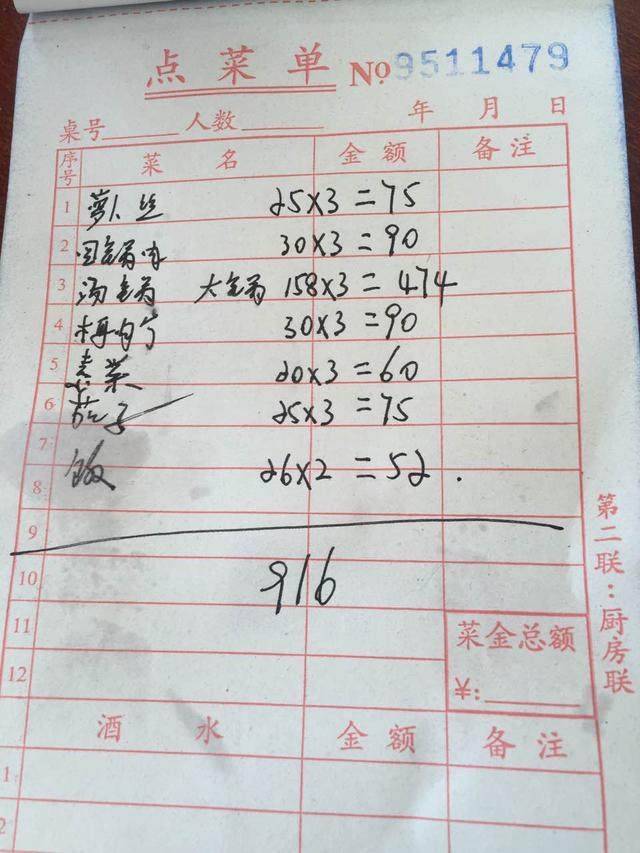 点菜单 No 9511479
桌号 人数 年 月 日
序号 菜名 金额 备注
1 萝卜丝 25×3=75
2 回锅肉 30×3=90
3 汤锅 大锅 158×3=474
4 30×3=90
5 素菜 20×3=60
6 茄子 25×3=75
7
8 饭 26×2=52.
9
10 916
11 菜金总额
12 ¥:
酒水 金额 备注
1
2
第二联:厨房联